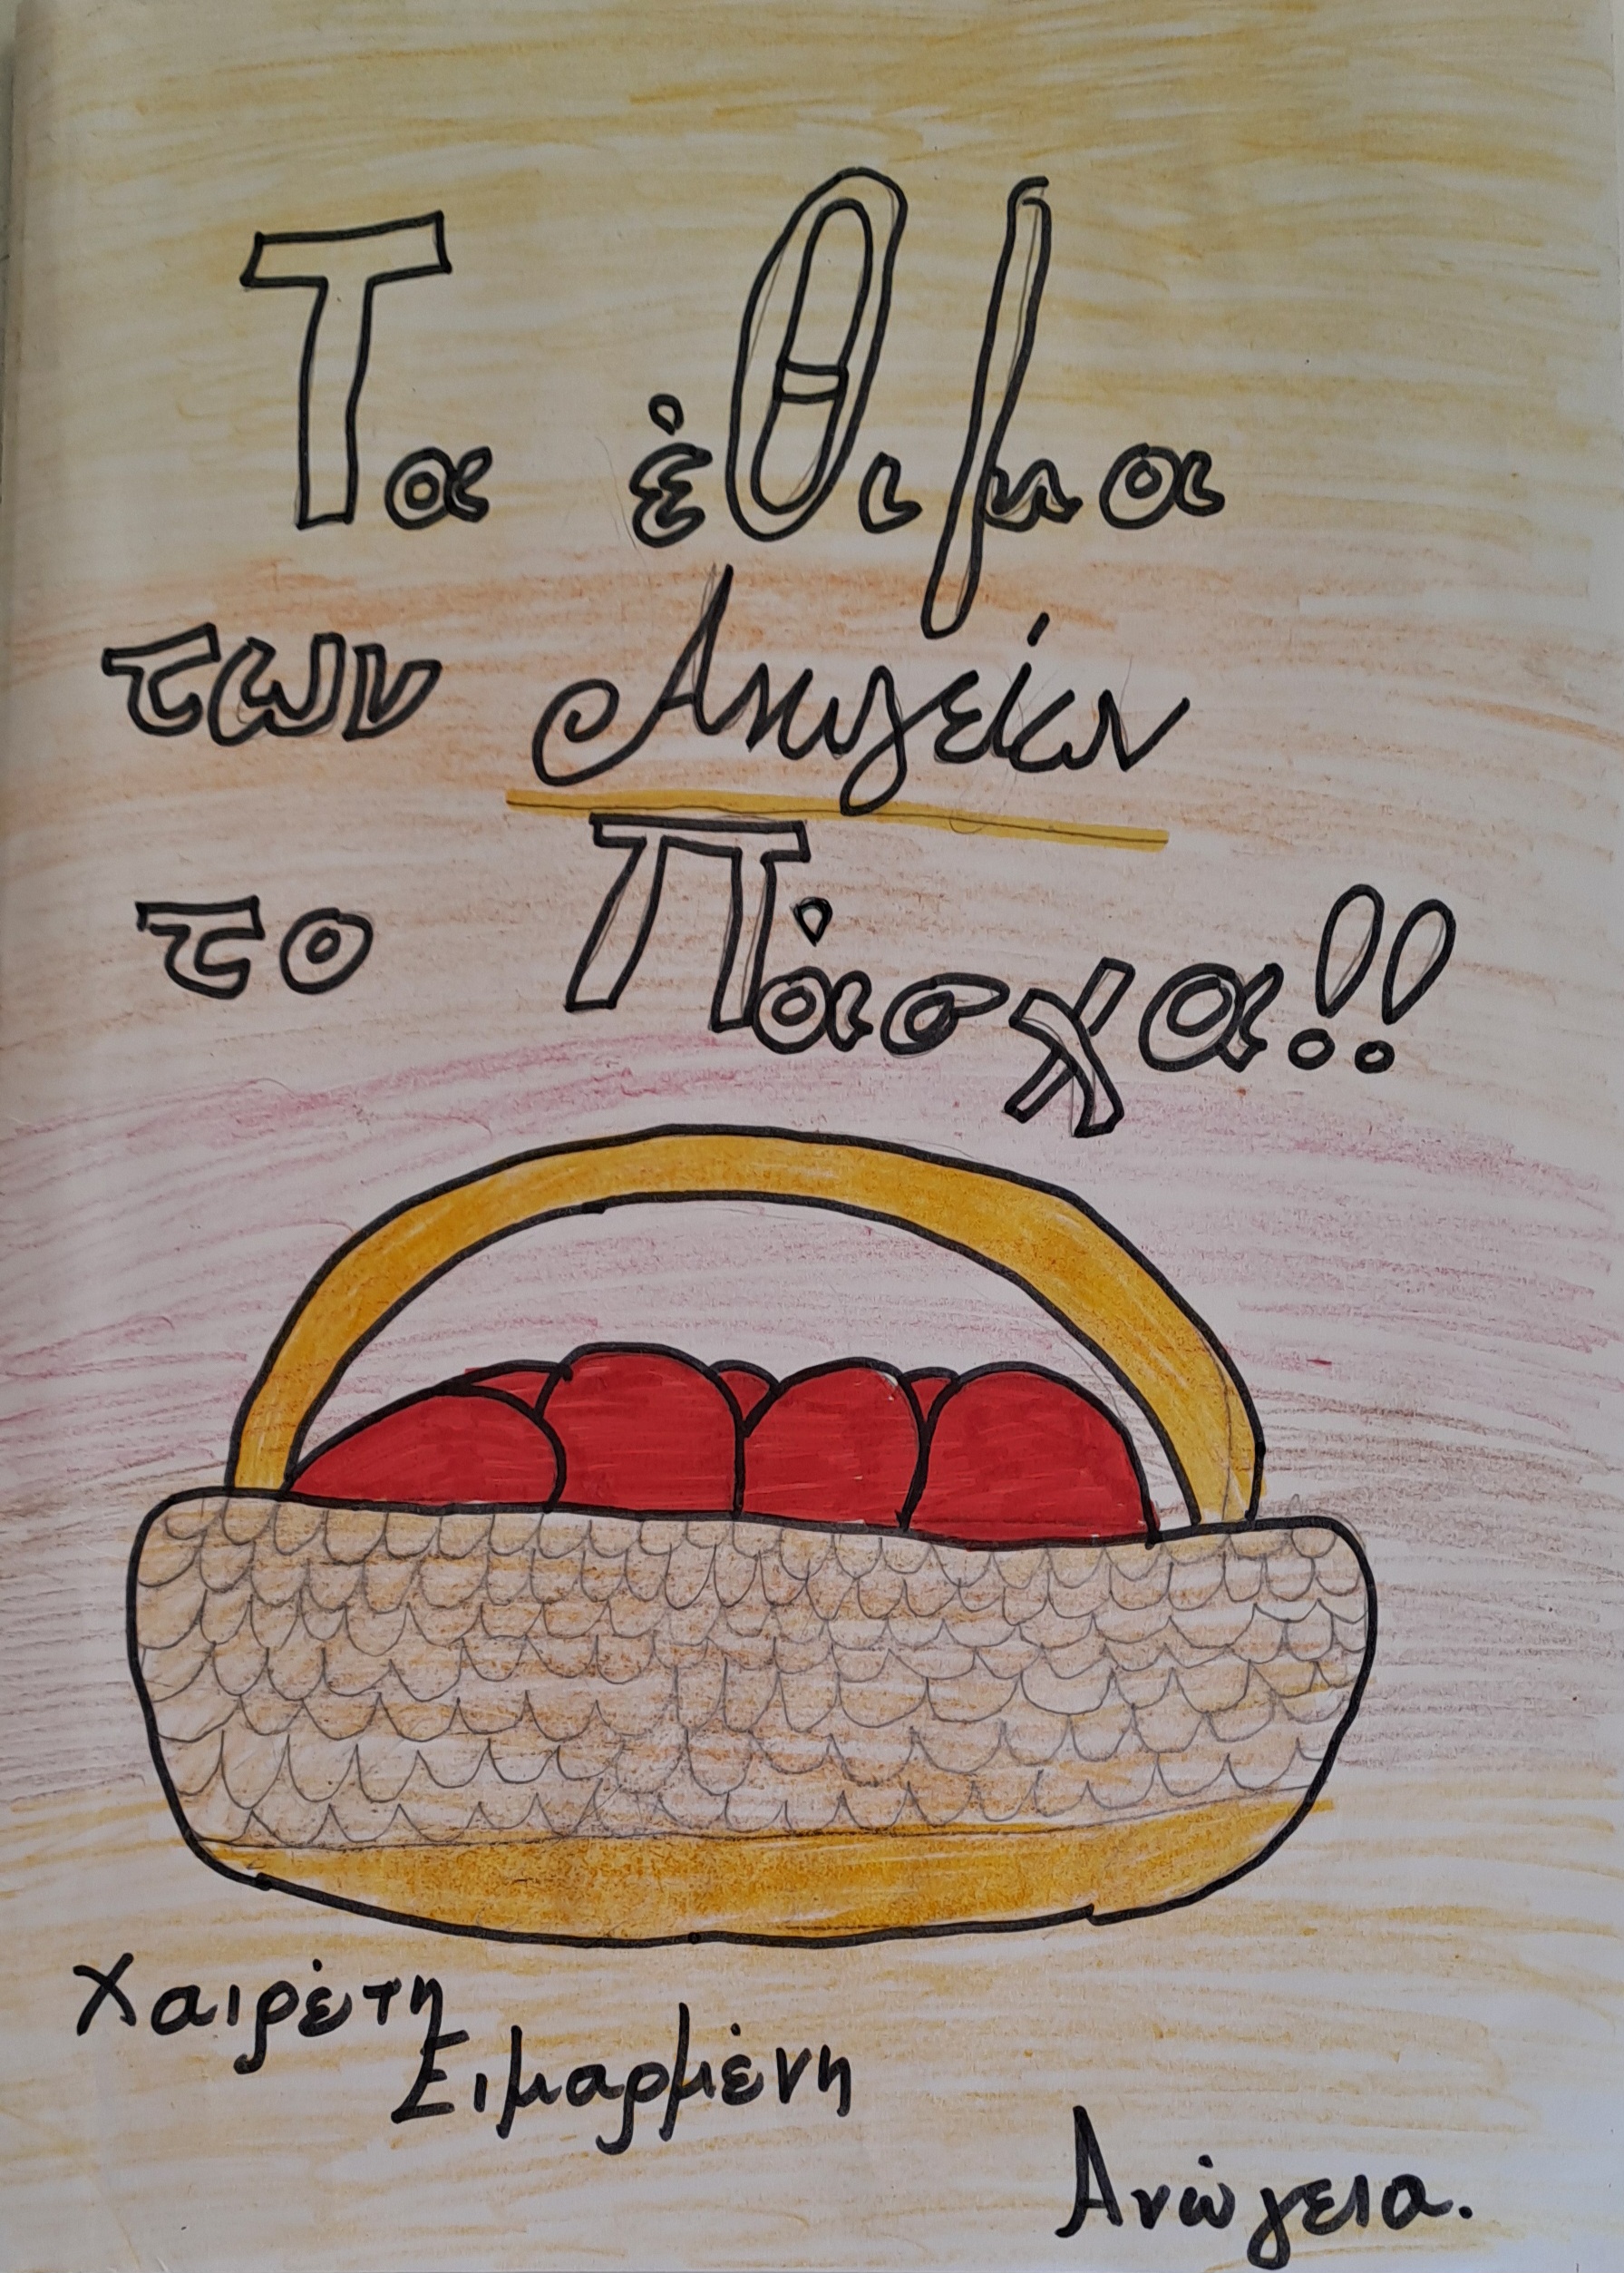 Τα έθιμα
των Ανωγείων
το Πάσχα!!
Χαιρέτη
Ειμαρμένη
Ανώγεια.